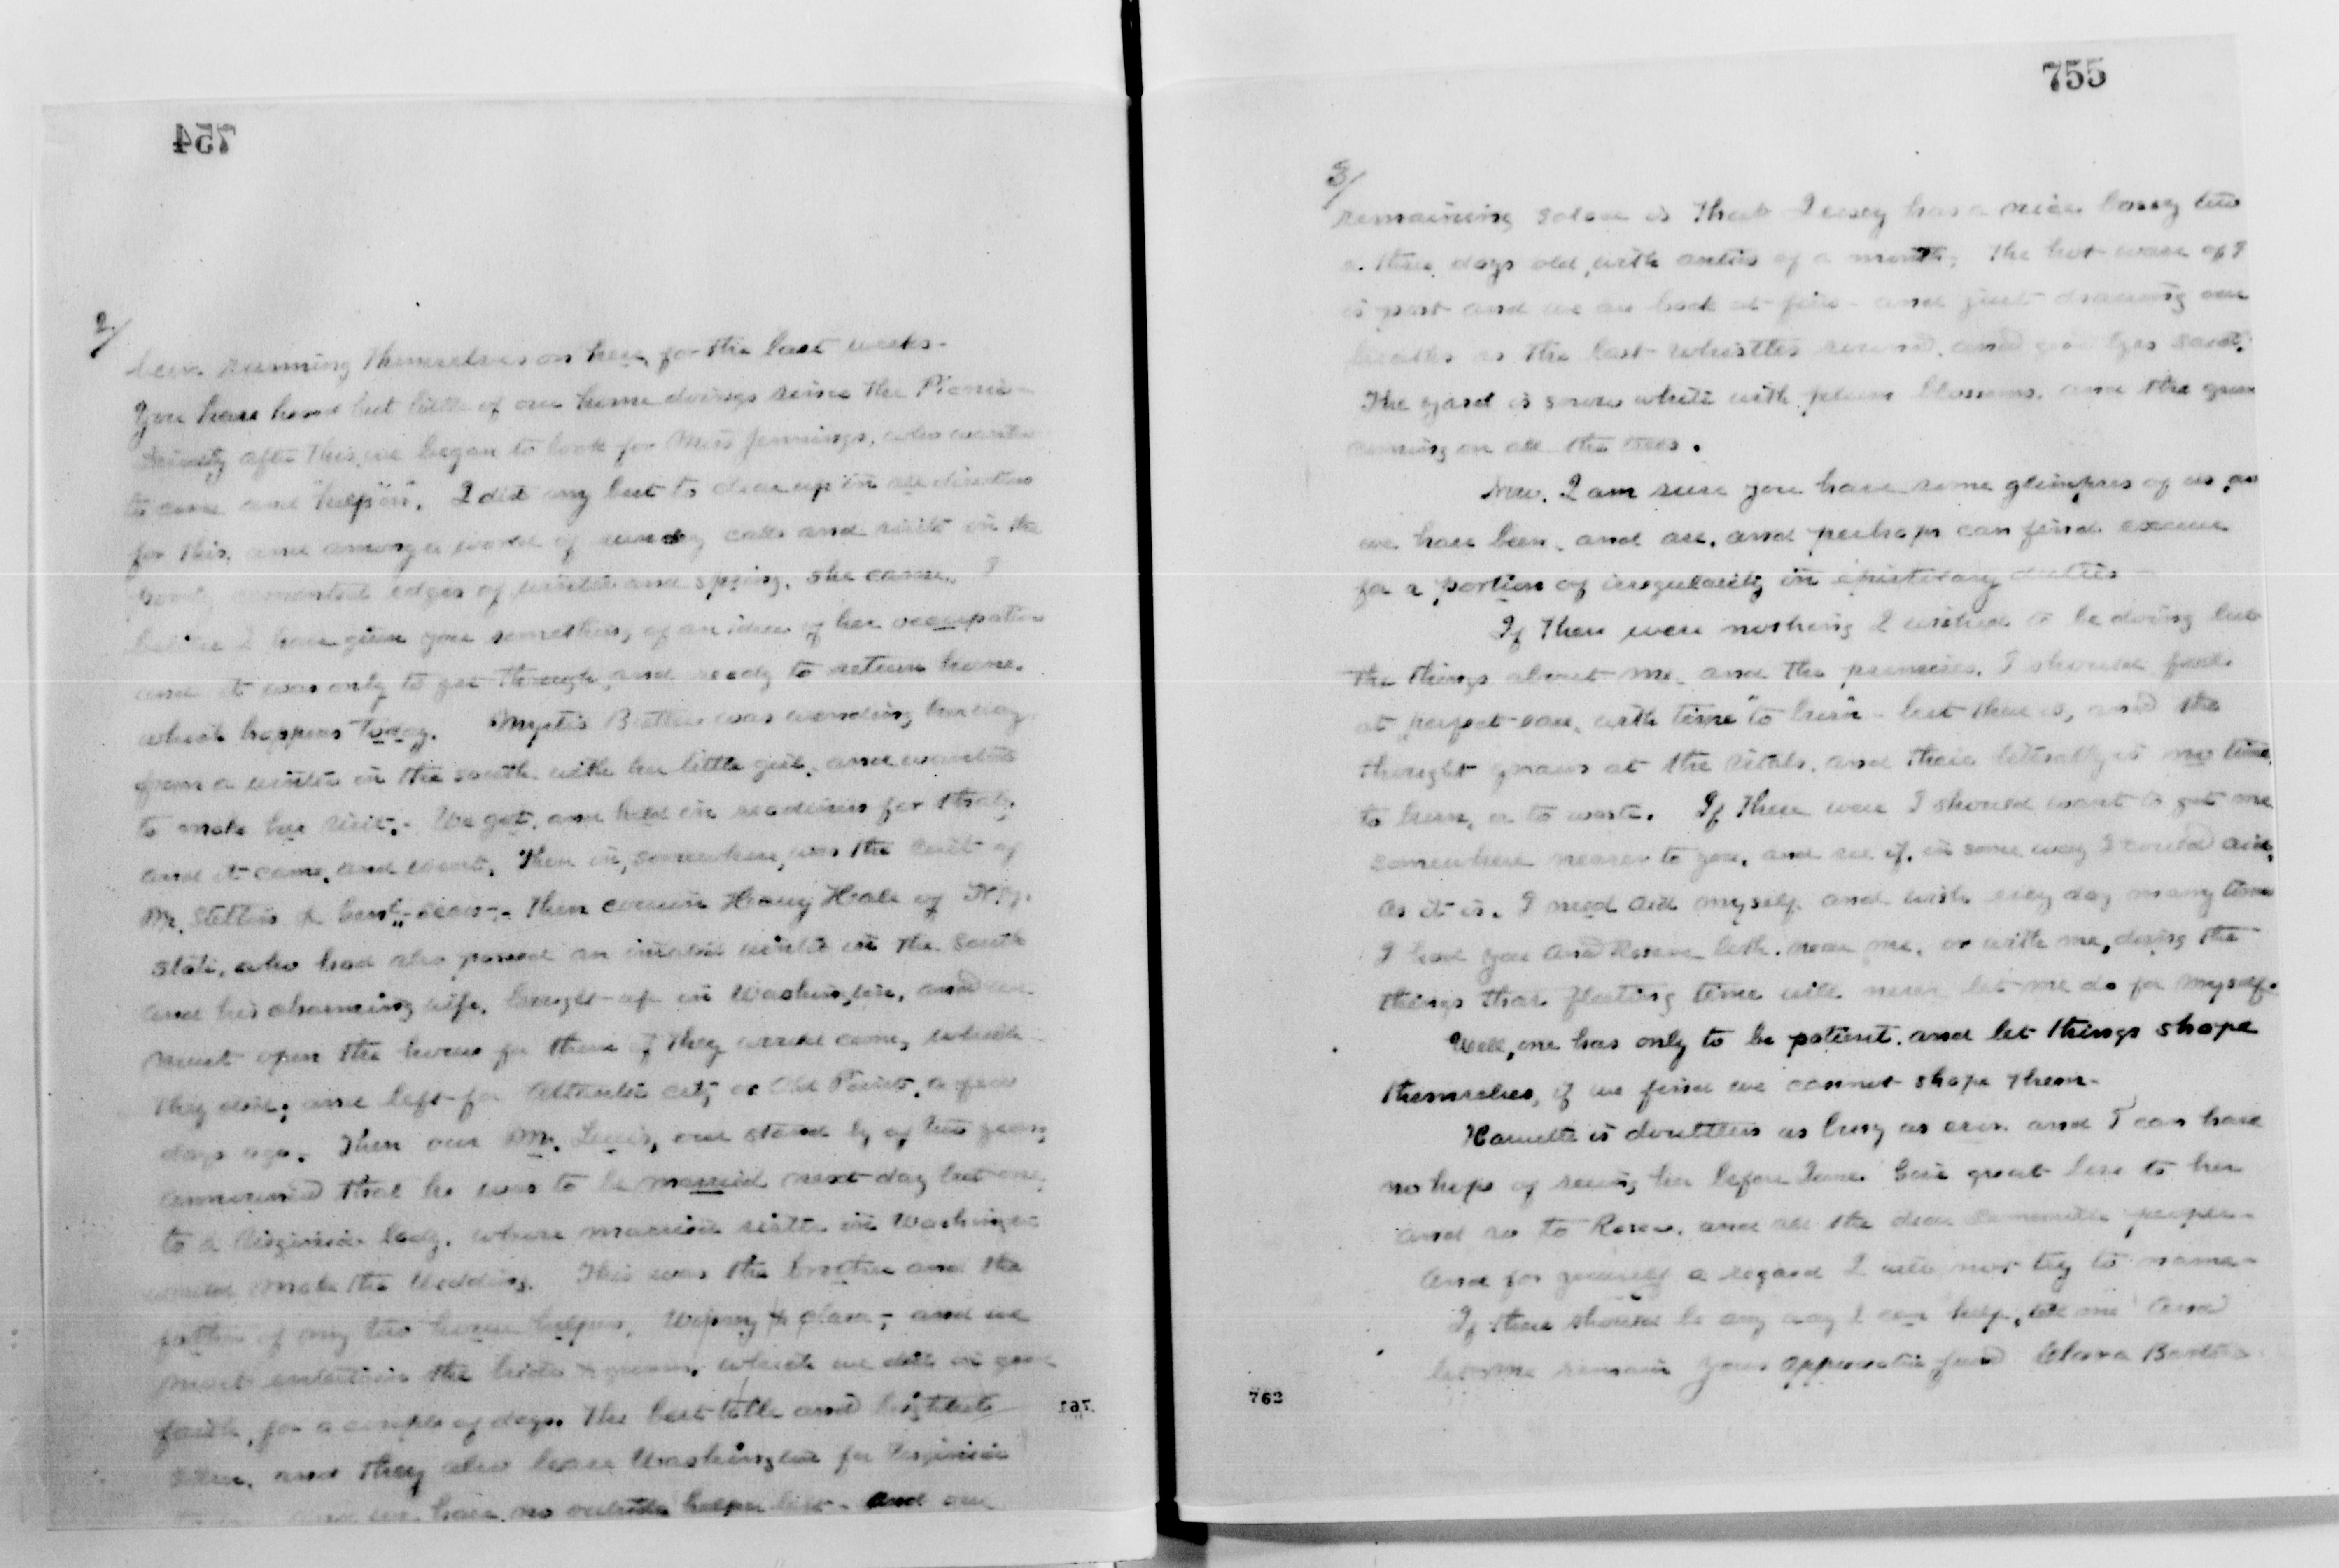 754
2/
been running themselves on here, for the last weeks -
You have heard but little of our home doings since the Picnic -
after this, we began to look for Miss Jennings, who wanted
to come and "help on". I did my best to clear up in all directions
for this, and among a world of sunday calls and visits in the
edges of winter and spring, she came. I
believe I have given you something of an idea of her occupation
and it was only to get through, and ready to return home.
which happens today. Myrtis Butler was wending her way
from a winter in the south with her little girl, and wanted
to make her visit. - We got, and held in readiness for that,
and it came, and went. Then in, somewhere, was the visit of
Mr. Then cousin Henry Heale of N.Y.
State, who had also passed an invalid winter in the South
and his charming wife, brought up in Washington, and we
must open the house for them if they would come, which
they did; and left for Atlantic City or Old Point, a few
days ago. Then our Mr. Lewis, our stand by of two years
announced that he was to be married next day but one,
to a Virginia lady, whose married sister in Washington
would make the wedding. This was the brother and the
father of my two house helpers, and we
must entertain the bride & groom, which we did in good
faith, for a couple of days. The best table and brightest
silver, and they also leave Washington for Virginia
and we have no outside helper left - and our
767
755
3/
remaining solace is that Jersey has a nice bossy two
or three days old, with antics of a month, The hot wave of 9
is past and we are back at fires - and just drawing our
breaths as the last whistles sound, and good byes said.
The yard is snow white with plum blossoms, and the green
coming on all the trees.
Now, I am sure you have some glimpses of us, as
we have been, and are, and perhaps can find excuse
for a portion of irregularity in epistolary duties -
If there were nothing I wished to be doing but
the things about me, and the premises, I should feel
at perfect ease, with time "to burn" - but there is, and the
thought gnaws at the vitals, and there literally is no time
to burn, or to waste. If there were I should want to get me
somewhere nearer to you, and see if, in some way I could aid,
As it is, I need aid myself and wish every day many times
I had you and Roscoe both, near me, or with me, doing the
things that fleeting time will never let me do for myself.
Well, one has only to be patient, and let things shape
themselves, if we find we cannot shape them -
Harriette is doubtless as busy as ever and I can have
no hope of seeing her before June. Give great love to her
and so to Roscoe, and all the dear Somerville people -
And for yourself a regard I will not try to name -
If there should be any way I can help, tell me and
let me remain your appreciative friend Clara Barton
762